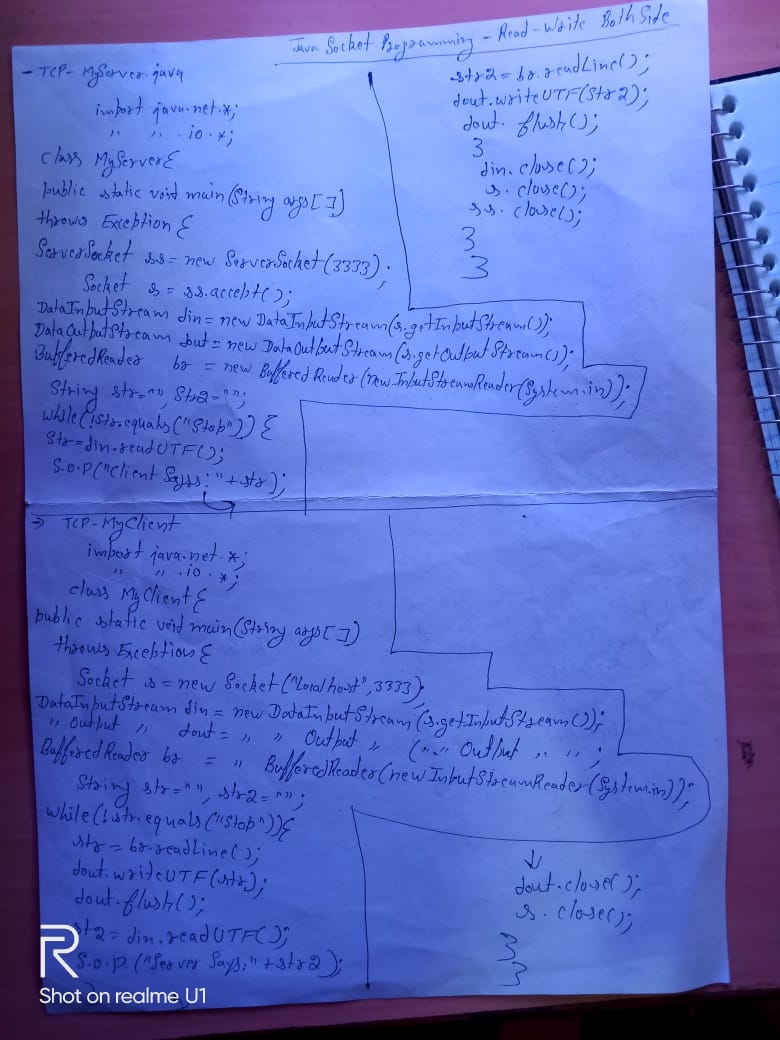 Java Socket Programming - Read - Write Both Side
- TCP- MyServer.java
import java.net.*;
" " .io.*;
class MyServer{
public static void main(String args[])
throws Exception {
ServerSocket ss = new ServerSocket(3333);
Socket s = ss.accept();
DataInputStream din = new DataInputStream(s.getInputStream());
DataOutputStream dout = new DataOutputStream(s.getOutputStream());
BufferedReader br = new BufferedReader(new InputStreamReader(System.in));
String str="", Str2="";
while(!str.equals("Stop")) {
Str=din.readUTF();
S.O.P("Client Says:"+str);
str2=br.readLine();
dout.writeUTF(Str2);
dout. flush();
}
din. close();
s. close();
ss. close();
}
}
→ TCP-MyClient
import java.net.*;
" " .io.*;
class MyClient{
public static void main(String args[])
throws Exception{
Socket s = new Socket("Localhost",3333);
DataInputStream din = new DataInputStream(s.getInputStream());
" Output " dout = " " Output " (" " Output " ";
BufferedReader br = " BufferedReader(new InputStreamReader(System.in));
String str="", str2="";
while(!str.equals("Stop")){
str=br.readLine();
dout.writeUTF(str);
dout.flush();
st2=din.readUTF();
S.O.P.("Server Says:"+str2);
}
dout.close();
s. close();
}
}
R
Shot on realme U1